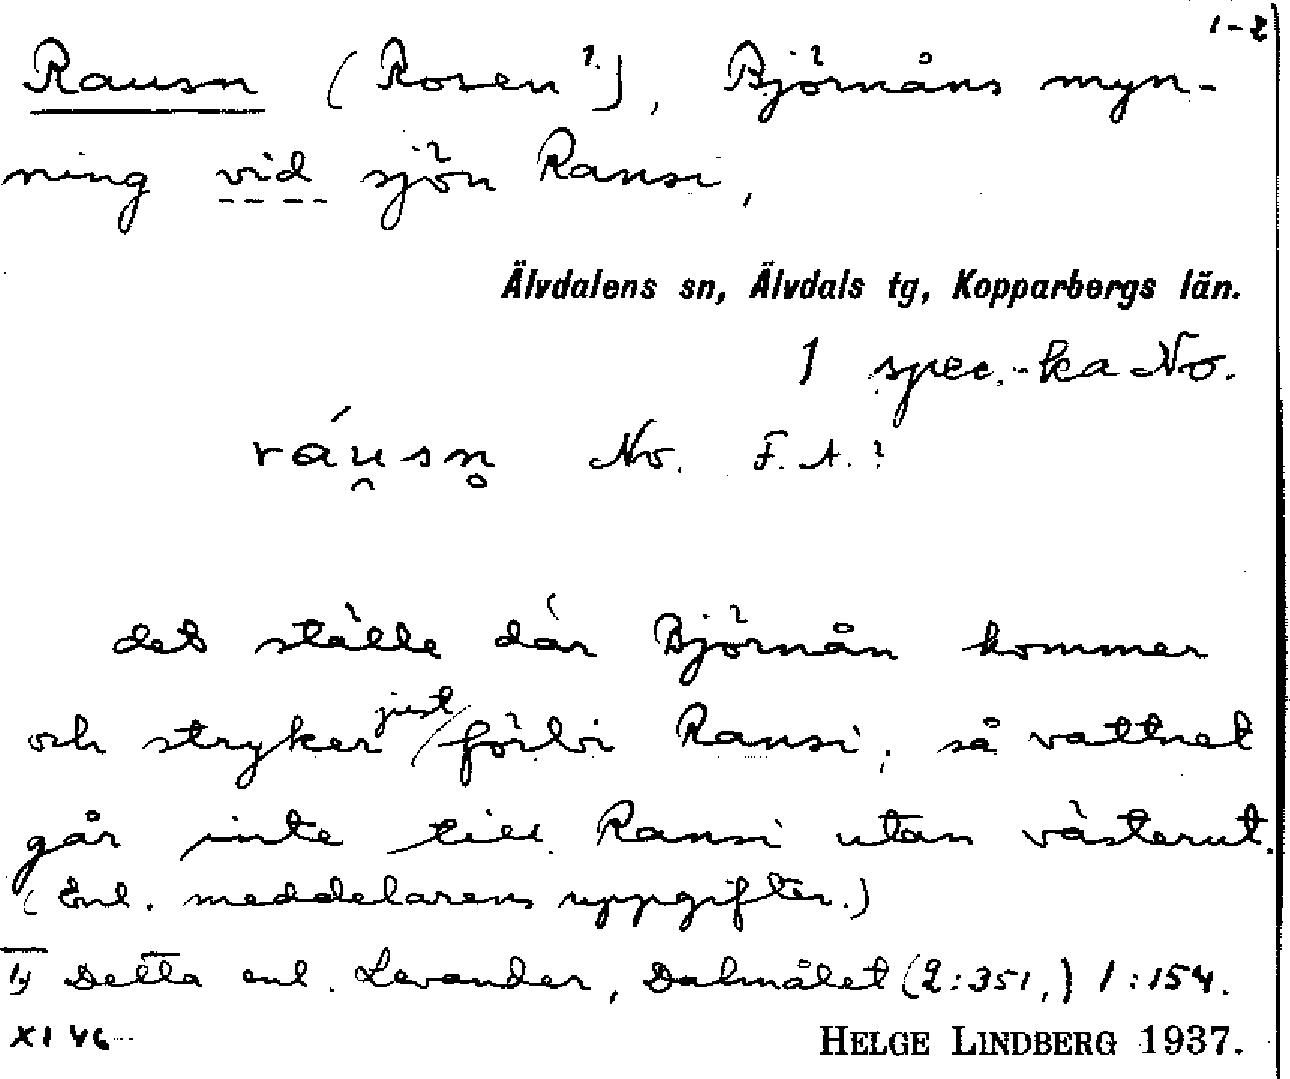 1-2
Rausn (Rosen¹⁾), Björnåns myn-
ning vid sjön Ransi,
Älvdalens sn, Älvdals tg, Kopparbergs län.
1 spec.-ka No.
ráu̯sn̥ No. F.A.?
det ställe där Björnån kommer
och stryker just förbi Ransi, så vattnet
går inte till Ransi utan västerut.
(Enl. meddelarens uppgifter.)
1) Detta enl. Levander, Dalmålet (2:351,) 1:154.
XI 46 HELGE LINDBERG 1937.